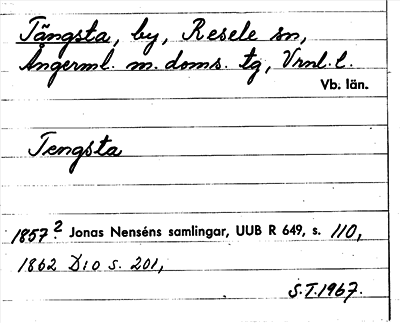 Tängsta, by, Resele sn,
Ångerml. m. doms. tg, Vrnl. l.
Vb. län.
Tengsta
1857? Jonas Nenséns samlingar, UUB R 649, s. 110,
1862 D:o s. 201,
S.T. 1967.